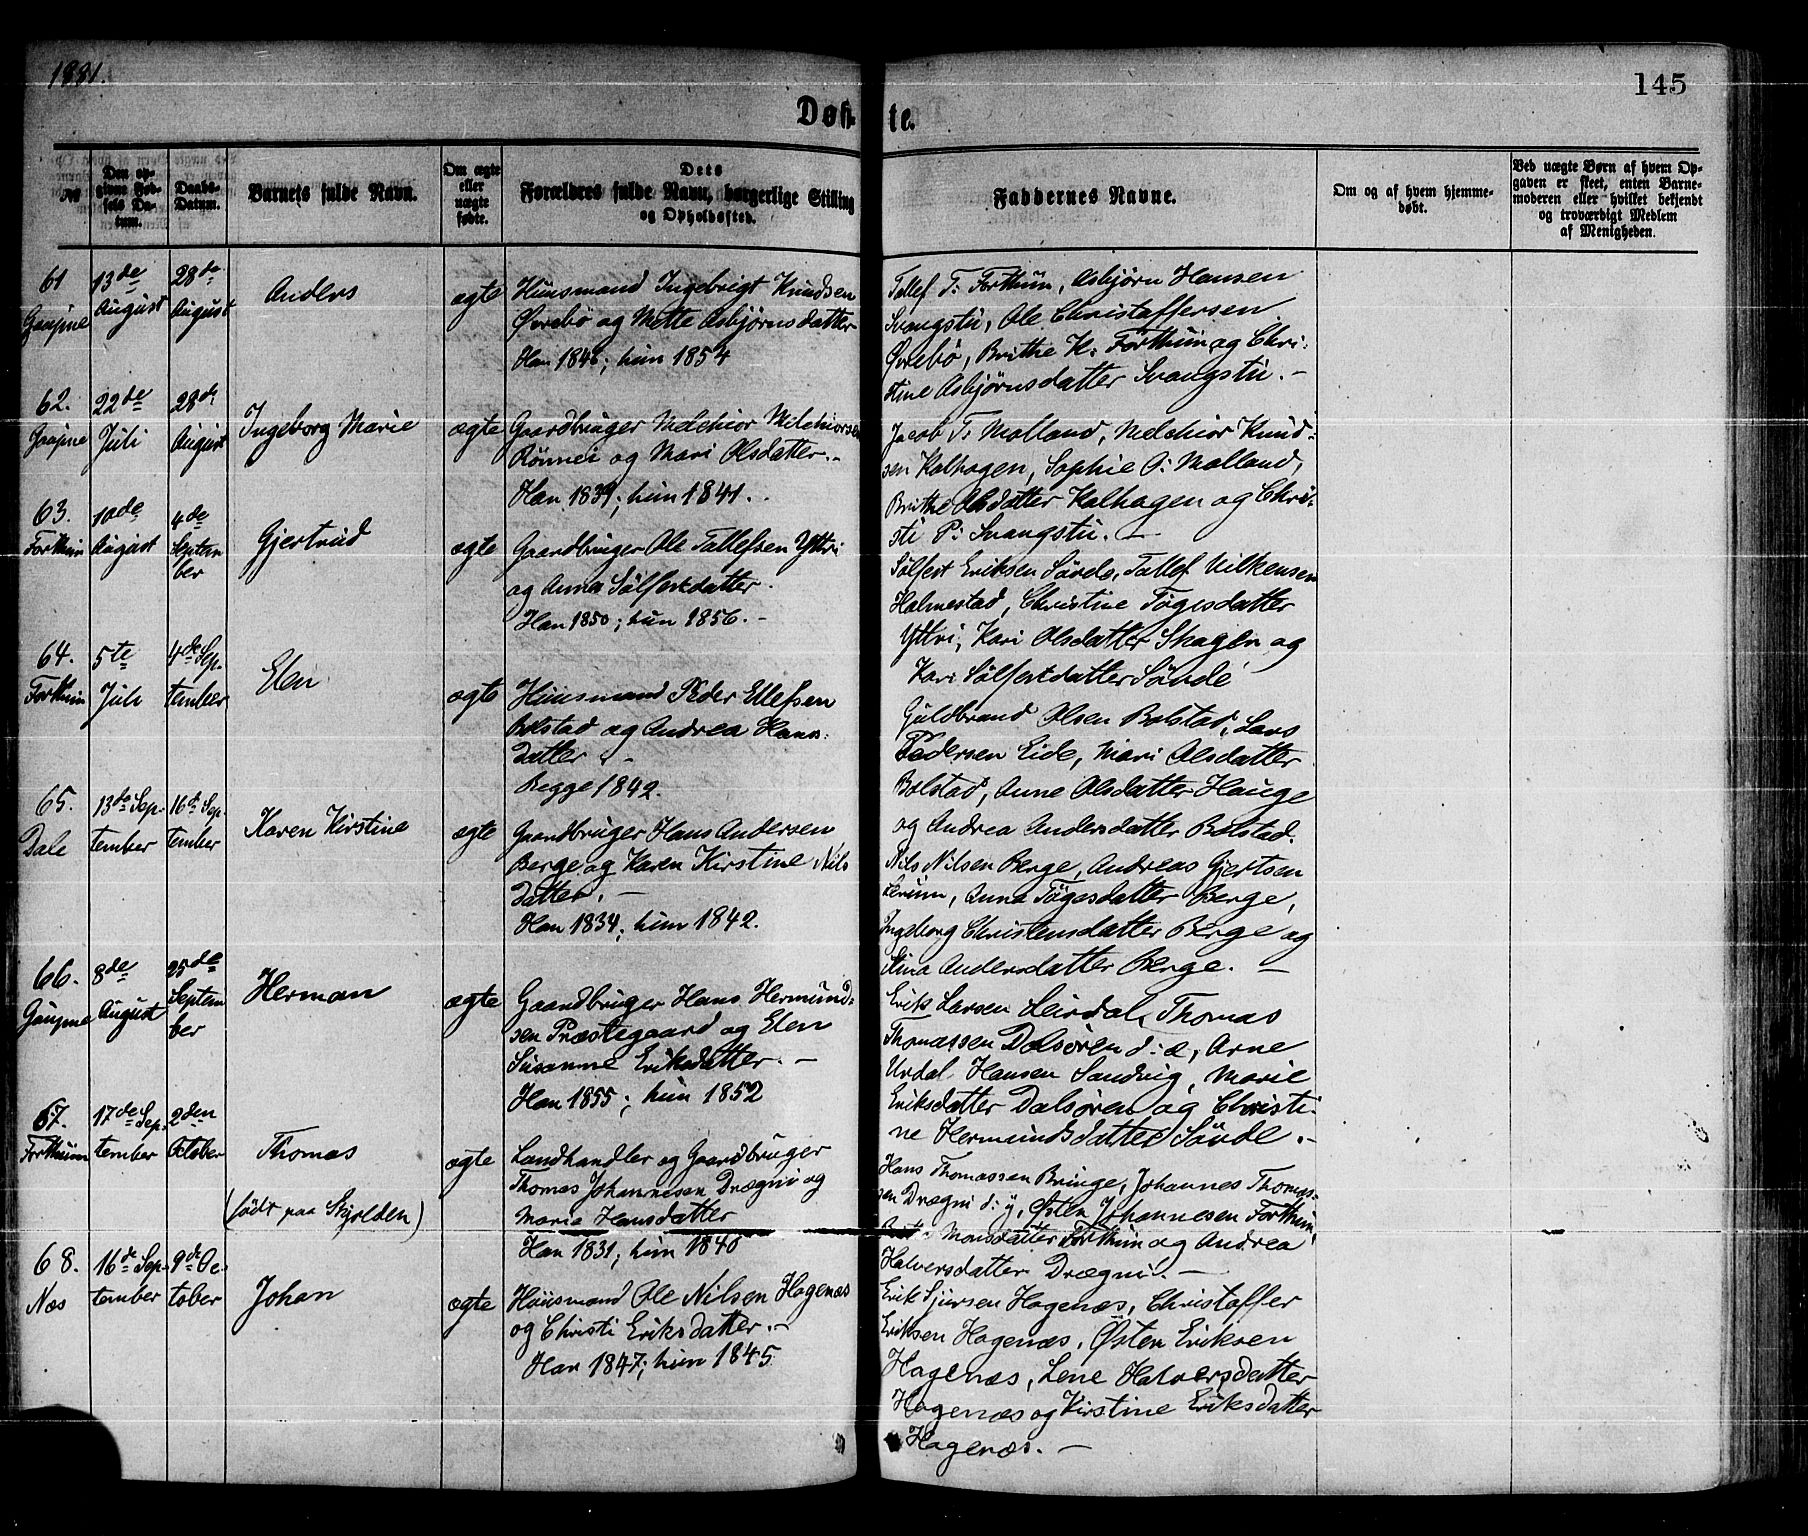 1881.
145
Døbte.
№
Den opgivne Fødsels Datum.
Daabs-Datum.
Barnets fulde Navn.
Om ægte eller uægte født.
Dets Forældres fulde Navn, borgerlige Stilling og Opholdssted.
Faddernes Navne.
Om og af hvem hjemmedøbt.
Ved uægte Børn af hvem Opgaven er skeet, enten Barnemoderen eller hvilket bekjendt og troværdigt Medlem af Menigheden.
61
Gaupne
13de
August
28de
August
Anders
ægte
Huusmand Ingebrigt Knudsen
Øvrebö og Mette Asbjørnsdatter
Han 1848; hun 1854
Tollef T: Forthun, Asbjørn Hansen
Svangstu, Ole Christaffersen
Øvrebö, Brithe K: Forthun og Chri-
stine Asbjørnsdatter Svangstu. –
62.
Gaupne
22de
Juli
28de
August
Ingeborg Marie
ægte
Gaardbruger Melchior Melchiorsen
Rönnei og Mari Olsdatter. –
Han 1839; hun 1841.
Jacob T: Molland, Melchior Knud-
sen Kalhagen, Sophie O: Molland,
Brithe Olsdatter Kalhagen og Chri-
sti P: Svangstu. –
63.
Forthun
10de
August
4de
Septem
ber
Gjertrud
ægte
Gaardbruger Ole Tollefsen Yttri
og Anna Sølfestdatter.
Han 1850; hun 1856. –
Sølfest Eriksen Søvde, Tollef Vilkensen
Holmestad, Christine Tøgesdatter
Yttri, Kari Olsdatter Skagen og
Kari Sølfestdatter Søvde
64.
Forthun
5te
Juli
4de Sep.
tember
Elen
ægte
Huusmand Peder Ellefsen
Bolstad og Andrea Hans-
datter. –
Begge 1842.
Guldbrand Olsen Bolstad, Lars
Pedersen Eide, Mari Olsdatter
Bolstad, Anne Olsdatter Hauge
og Andrea Andersdatter Bolstad.
65.
Dale
13de Sep-
tember
16de Sep-
tember
Karen Kirstine
ægte
Gaardbruger Hans Andersen
Berge og Karen Kirstine Nils
datter. –
Han 1834; hun 1842.
Nils Nilsen Berge, Andreas Gjertsen
Lerum, Anna Tøgesdatter Berge,
Ingeborg Christensdatter Berge og
Stina Andersdatter Berge. –
66.
Gaupne
8de
August
25de
Septem
ber
Herman
ægte
Gaardbruger Hans Hermund-
sen Præstegaard og Elen
Susanne Eriksdatter. –
Han 1855; hun 1852
Erik Larsen Leirdal, Thomas
Thomassen Dalsøren d: æ, Arne
Urdal, Hansen Sandvig, Marie
Eriksdatter Dalsøren og Christi-
ne Hermundsdatter Søvde. –
67.
Forthun
17de Sep.
tember
2den
October
Thomas
(født paa Skjolden)
ægte
Landhandler og Gaardbruger
Thomas Johannesen Drægni og
Maria Hansdatter
Han 1831; hun 1840
Hans Thomassen Bringe, Johannes Thomas-
sen Drægni d: y, Østen Johannesen Forthun,
Monsdatter Forthun og Andrea
Halversdatter Drægni. –
68.
Næs
16de Sep-
tember
9de Oc-
tober
Johan
ægte
Huusmand Ole Nilsen Hagenæs
og Christi Eriksdatter. –
Han 1847; hun 1845
Erik Sjursen Hagenæs, Christaffer
Eriksen Hagenæs, Østen Eriksen
Hagenæs, Lene Halversdatter
Hagenæs og Kirstine Eriksdatter
Hagenæs. –